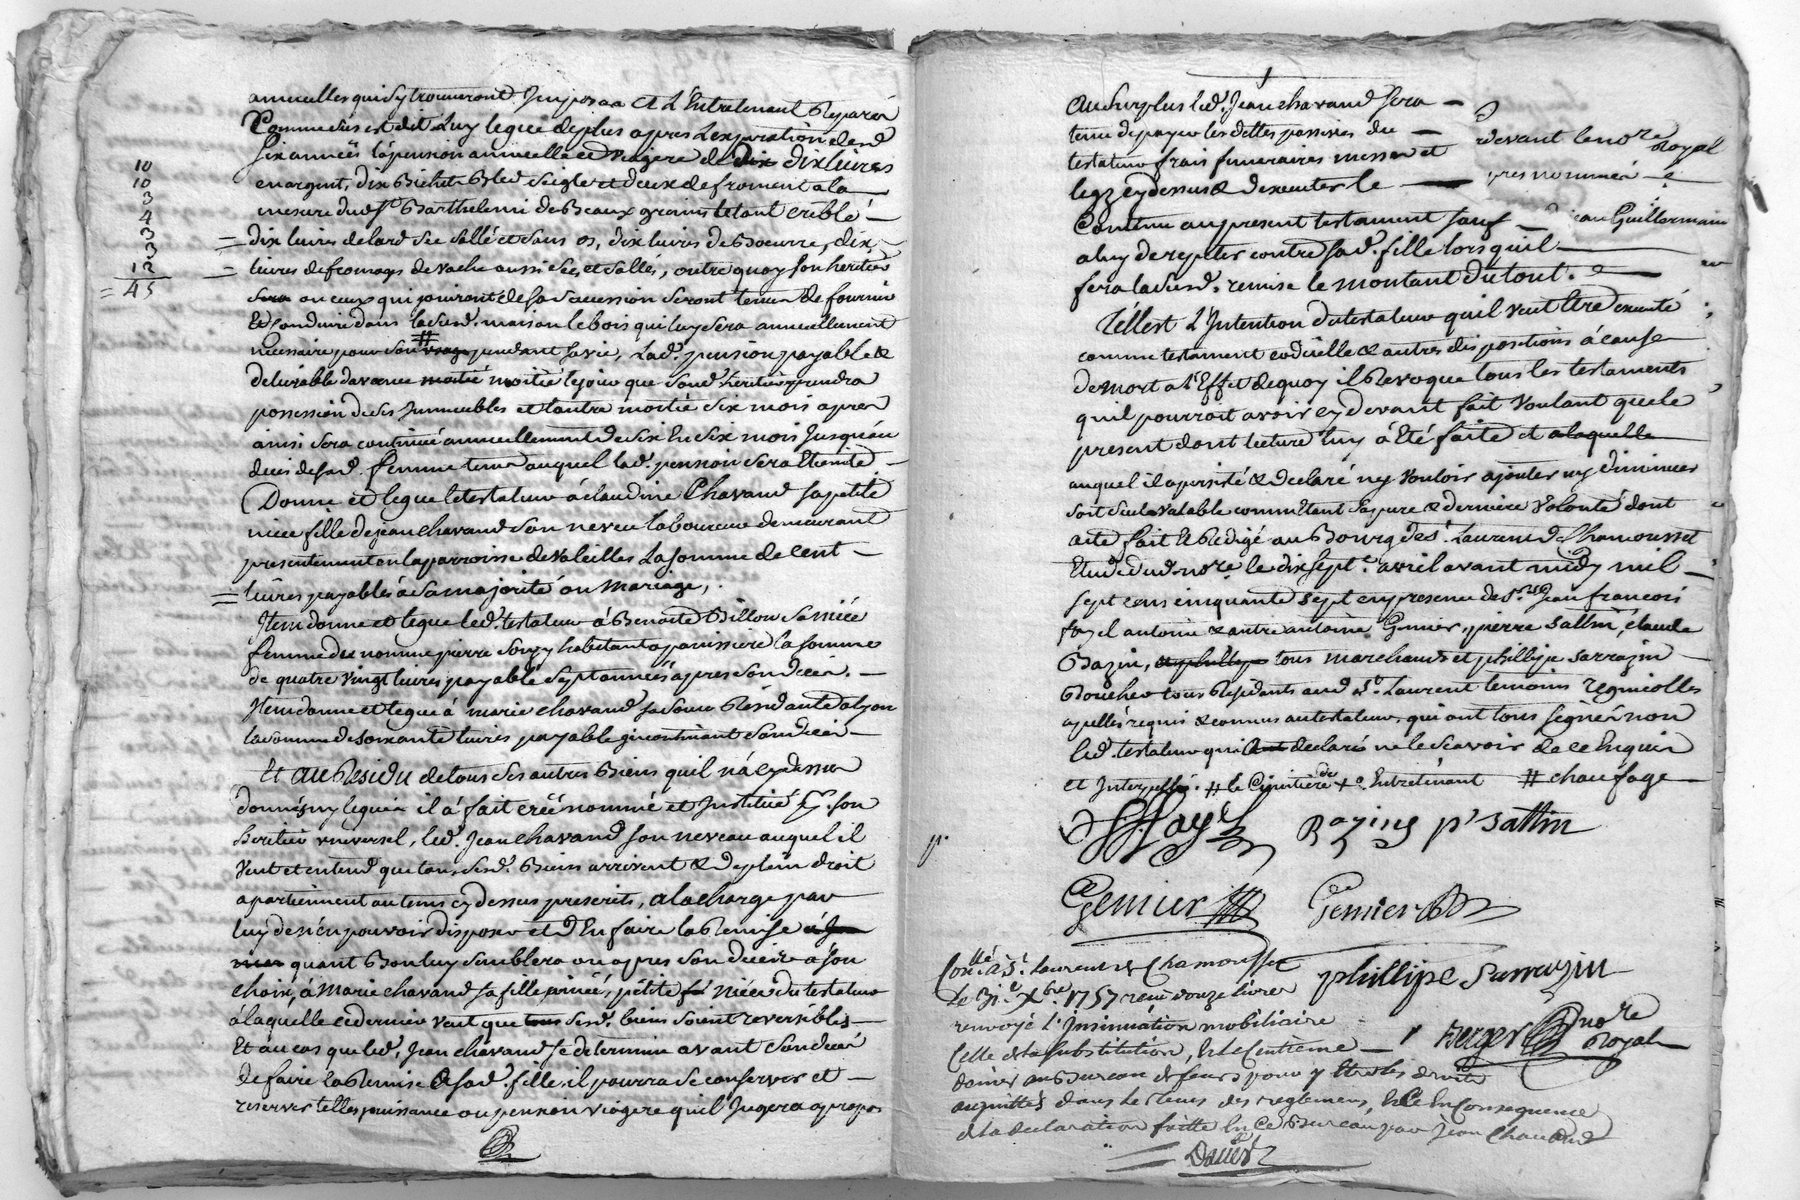 10
10
3
4
3
3
12
45
annuelles qui s'y trouveront Imposéa et L'Entretenant Reparér
Comme dús est dit Luy legue deplus apres Lexpiration desd.
Six années la pension annuelle et viagere de dix dix livres
en argent, dix Bichets Bled Seigle et deux de froment a la
mesure dud. St. Barthelemi de Beaux grains le tout criblé
dix livres de lard Sec Sallé et Sans os, dix livres de Boeurre, dix
livres de fromages de vache aussi Séc, et Sallés, outre quoy Son heritier
Sera ou ceux qui jouiront de Sa Sucession Seront tenus de fournir
Et Conduire dans la Susd. maison le bois qui luy Sera annuellement
necessaire pour Son usage # pendant Sa vie, Lad. pension payable &
delivrable d'avance moitié moitié le jour que Sond. heritier prendra
possession de Ses Immeubles et l'autre moitié Six mois apres
ainsi Sera continué annuellement de Six En Six mois Jusqu'au
deces de Sad. femme tems auquel lad. pension Sera Eteinte
Donne et legue le testateur à Claudine Chavand Sa petite
niece fille de jean Chavand Son neveu laboureur demeurant
presentement en la parroisse de Valeilles La Somme de Cent
livres payables à Sa majorité ou Mariage,
Item donne et legue led. testateur à Benoite Billon Sa niéce
femme du nommé pierre Souzy habitant a panissiere la Somme
de quatre vingt livres payable Sept années apres Son decés.
Item donne et legue à marie Chavand Sa Soeur Residante a Lyon
la Somme de Soixante livres payable incontinant Son decés
Et au Residu de tous Ses autres Biens qu'il n'a cy dessus
donnés ny legués il à fait créé nommé et Institué Son
heritier universel, led. Jean Chavand Son neveau auquel il
Veut et entend que tous Sesd. Biens arrivent & de plein droit
apartiennent au tems cy dessus prescrits, a la charge par
luy de n'en pouvoir disposer et d'En faire la Remise
quant Bon luy Semblera ou apres Son decés à Son
choix, à Marie Chavand Sa fille ainée, petite niéce du testateur
à laquelle ce dernier veut que tous Sesd. biens Soient reversibles
Et au cas que led. Jean Chavand Se determine avant Son decés
de faire la Remise à Sad. fille, il pourra Se conserver et
reserver telles jouissance ou pension viagere qu'il Jugera apropos
Au Surplus led. Jean Chavand Sera
tenu de payer les dettes passives du
testateur frais funeraires messes et
legz cy dessus & d'executer le
Contenu au present testament Sauf
a luy de repeter contre Sad. fille lors qu'il
fera la Susd. remise le montant du tout.
devant le nore
Royal
nommé
jean Guillermain
Telle est L'Intention du testateur qu'il veut Etre executé
comme testament codicille & autres dispositions à cause
de mort a l'Effet de quoy il Revoque tous les testaments
qu'il pourroit avoir cy devant fait Voulant que le
present dont lecture luy à Eté faite et a laquelle
auquel il a persisté & declaré n'y vouloir ajouter ny diminuer
soit Seul valable contenant Sa pure & derniere Volonté dont
acte fait et Redigé au Bourg de St. Laurent de Chamousset
Etude dud. nore. le dix Sept.e avril avant midy mil
Sept cens cinquante Sept en presence de Srs. Jean francois
fayel antoine & autre antoine Genier, pierre Sattin, claude
Bazin, tous marchands et phillipe Sarrazin
Boucher tous Residants aud. St. Laurent temoins regnicolles
apellés requis & connus au testateur, qui ont tous Signé & non
led. testateur qui à declaré ne le Scavoir de ce Enquis
et Interpellé. # le Cimitiére de + Entretenant # chauffage
Fayel Bazin p' Sattin
Genier Genier
phillipe Sarrazin
Berger nore
Royal
Conllé à St. Laurent de Chamousset
le 31e. Xbre 1757 reçu douze livres
renvoyé l'Insinuation mobiliaire
Celle de la Substitution, & le Centieme
denier au Bureau de feurs pour y Etre les droits
acquittés dans le tems des reglemens, & le En Consequence
de la declaration faitte En Ce Bureau par Jean Chavand